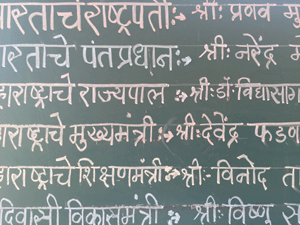 भारताचे राष्ट्रपती:- श्री: प्रणव
भारताचे पंतप्रधान:- श्री: नरेंद्र
महाराष्ट्राचे राज्यपाल -: श्री: डॉ विद्यासाग
महाराष्ट्राचे मुख्यमंत्री:- श्री: देवेंद्र फडण
महाराष्ट्राचे शिक्षणमंत्री:- श्री:- विनोद
दिवासी विकासमंत्री -: श्री:- विष्णू